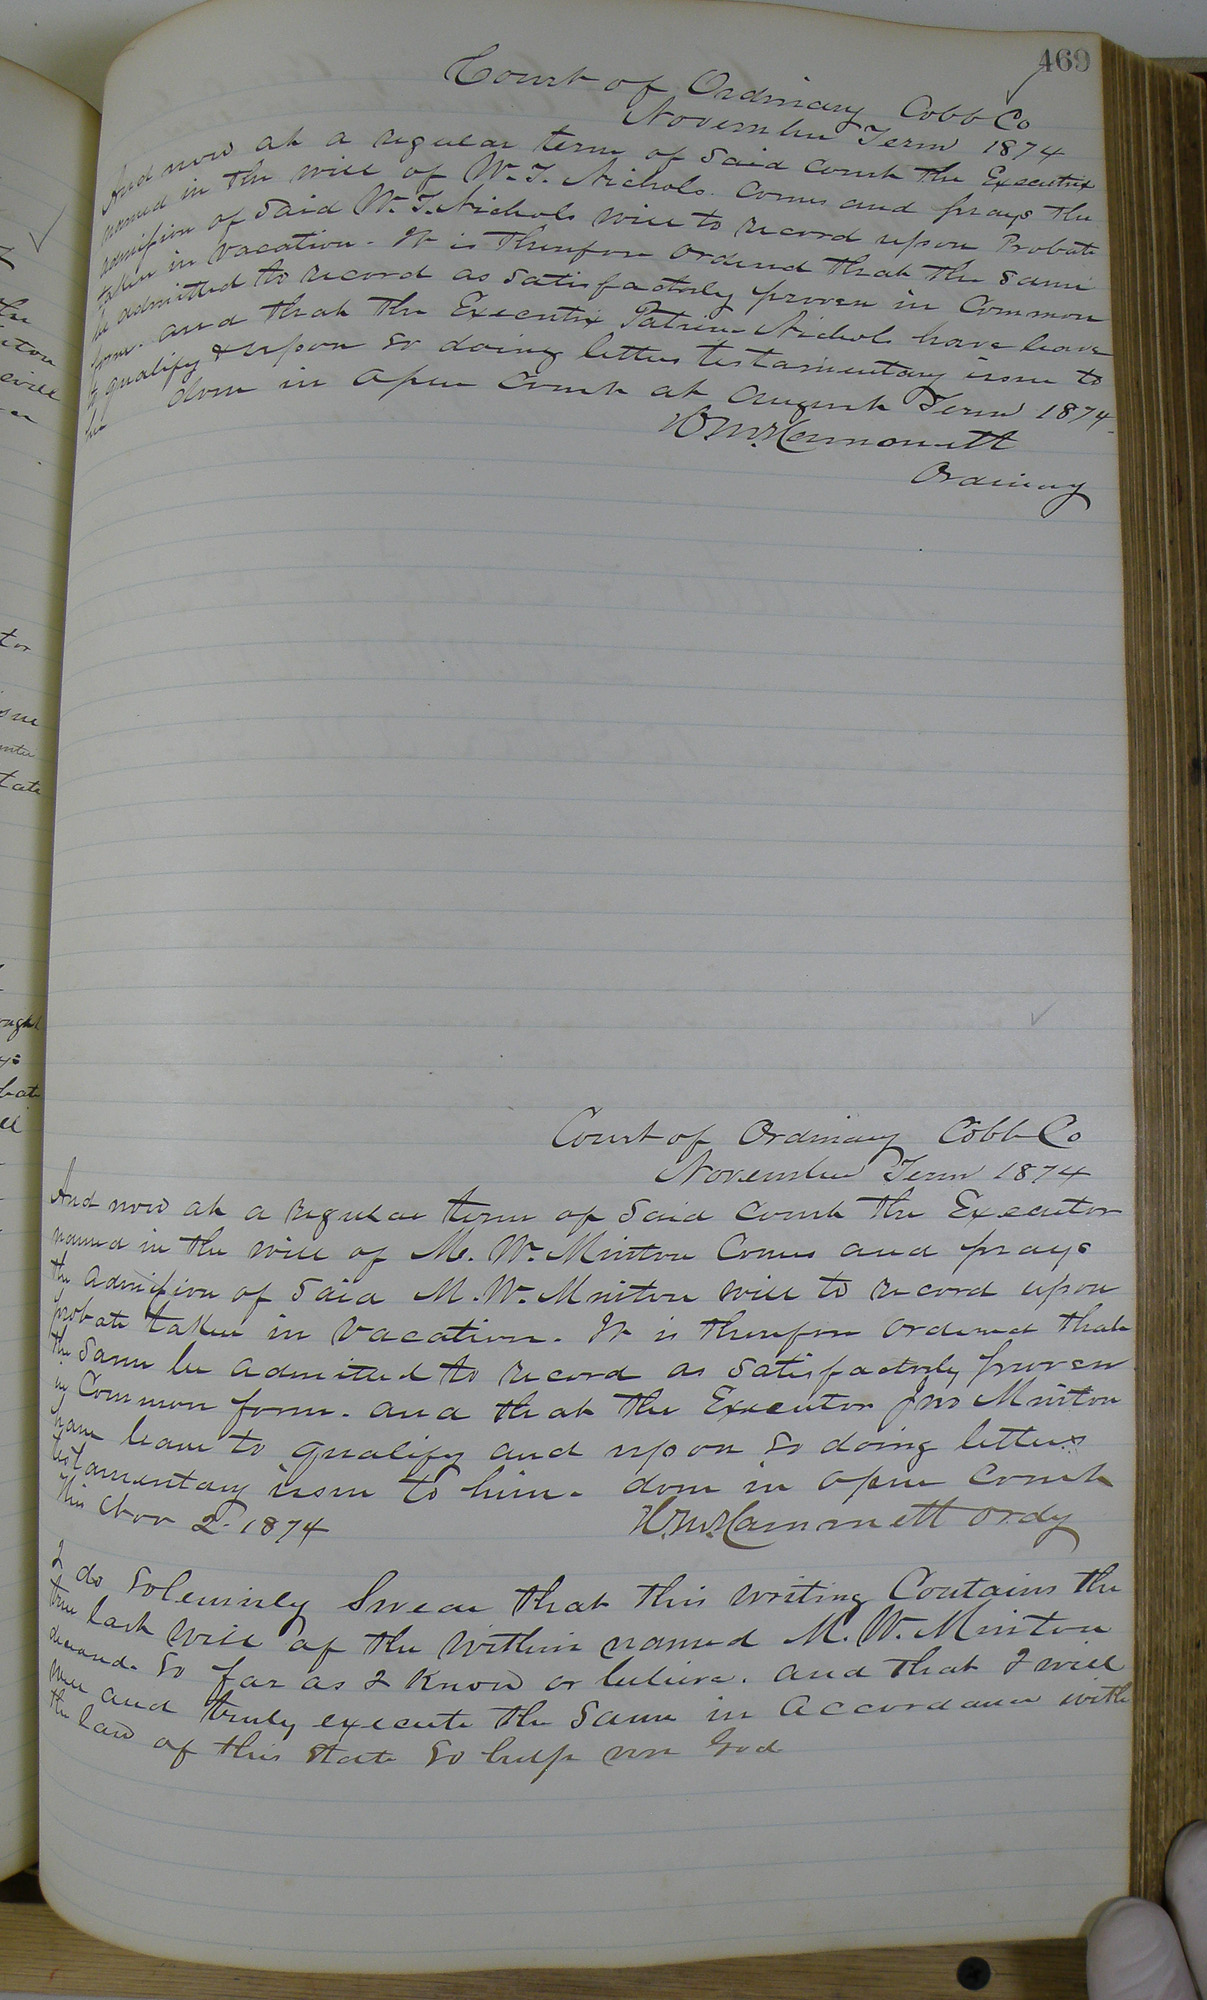 469
Court of Ordinary Cobb Co
November Term 1874
And now at a regular term of said Court the Executrix
named in the will of W. T. Nichols Comes and prays the
admission of said W. T. Nichols will to record upon Probate
taken in vacation. It is therefore ordered that the same
be admitted to record as satisfactorily proven in Common
form. and that the Executrix Nichols have leave
to qualify & upon so doing letters testamentary issue to
her done in open Court at August Term 1874
Ordinary
Court of Ordinary Cobb Co
November Term 1874
And now at a regular term of said Court the Executor
named in the will of M. W. Minton Comes and prays
the admission of said M. W. Minton will to record upon
probate taken in vacation. It is therefore ordered that
the same be admitted to record as satisfactorily proven
in Common form. and that the Executor Jno Minton
have leave to qualify and upon so doing letters
testamentary issue to him. done in open Court
This Nov 2. 1874 Hammett ordy
I do solemnly Swear that this writing Contains the
true last will of the within named M. W. Minton
deceased. so far as I know or believe. and that I will
well and truly execute the same in accordance with
the laws of this state so help me God
the
will
tor
tate